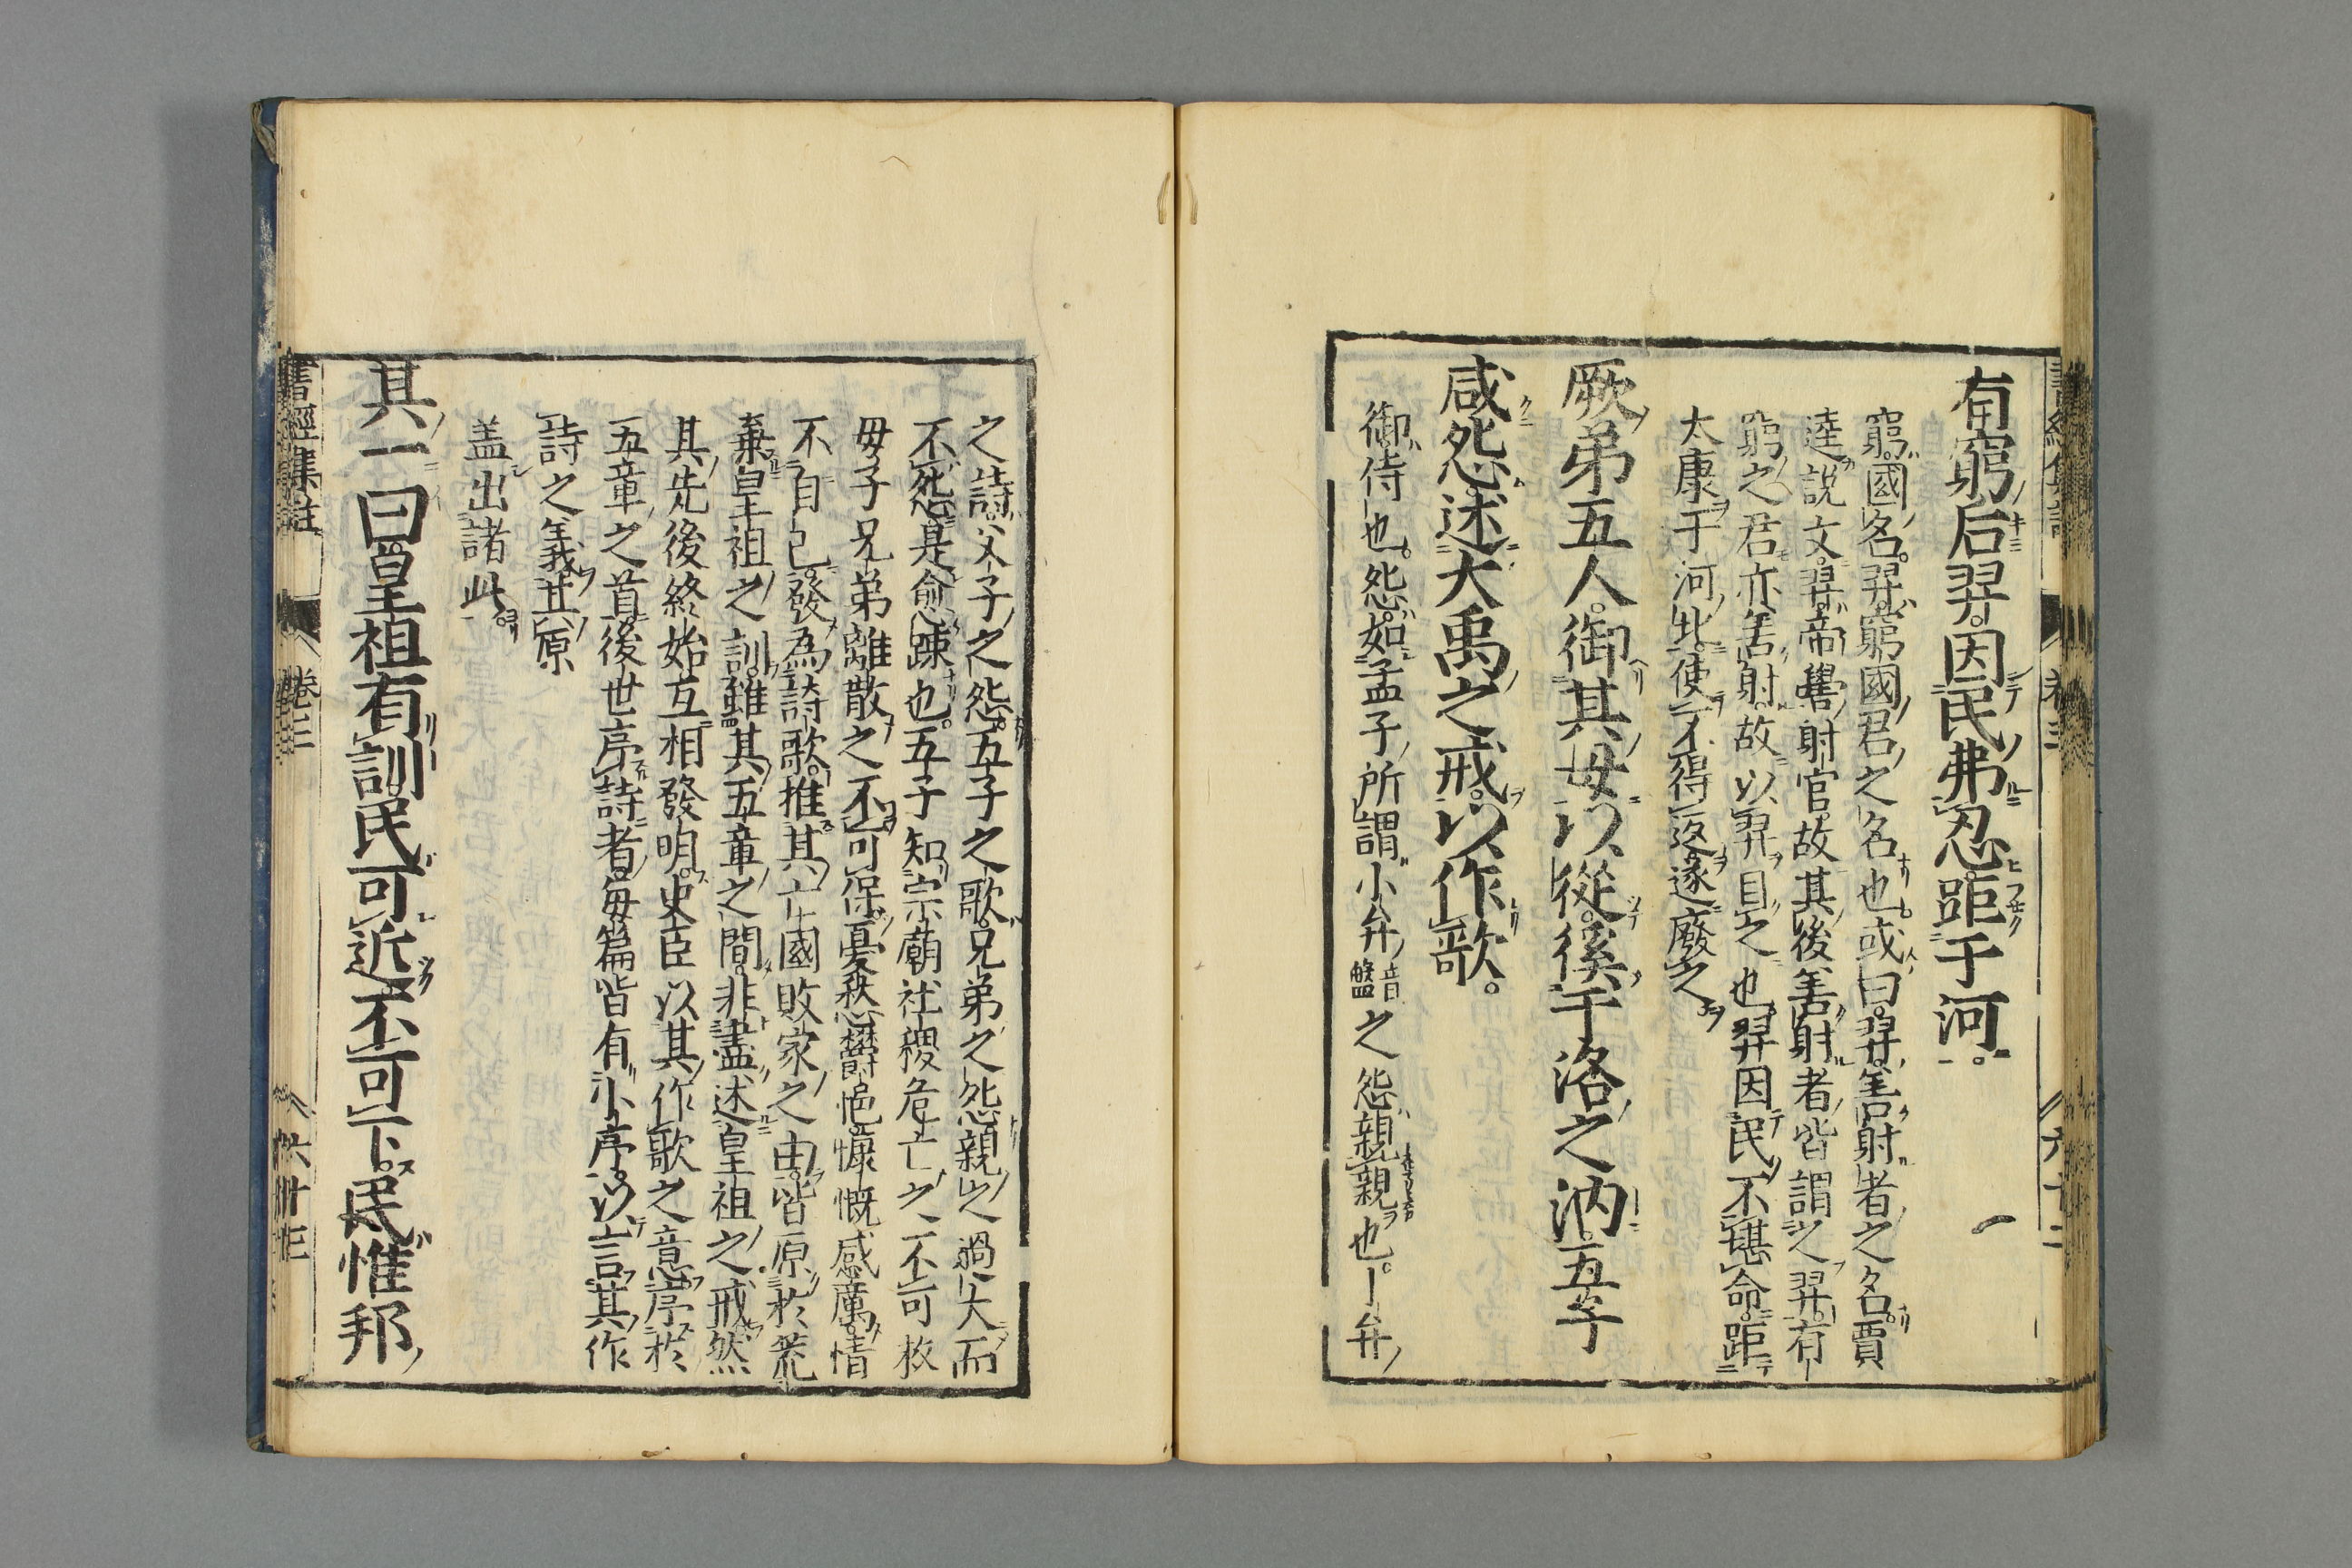 有窮后羿。因民弗忍。距于河。
窮。國名。羿。窮國君之名也。或曰。羿善射者之名。賈
逵說文。羿帝嚳射官。故其後善射者皆謂之羿。有
窮之君亦善射。故以羿目之也。羿因民不堪命。距
太康于河北。使不得返。遂廢之
厥弟五人。御其母以從。徯于洛之汭。五子
咸怨。述大禹之戒。以作歌。
御。侍也。怨。如孟子所謂小弁音盤之怨。親親也。小弁
之詩。父子之怨。五子之歌。兄弟之怨。親之過大而
不怨。是愈疎也。五子知宗廟社稷危亡之不可救
母子兄弟離散之不可保。憂愁鬱悒。慷慨感厲。情
不自已。發為詩歌。推其亡國敗家之由。皆原於荒
棄皇祖之訓。雖其五章之間。非盡述皇祖之戒。然
其先後終始互相發明。史臣以其作歌之意。序於
五章之首。後世序詩者。每篇皆有小序。以言其作
詩之義。其原
盖出諸此
其一曰。皇祖有訓。民可近。不可下。民惟邦
書經集註 卷三 六十三